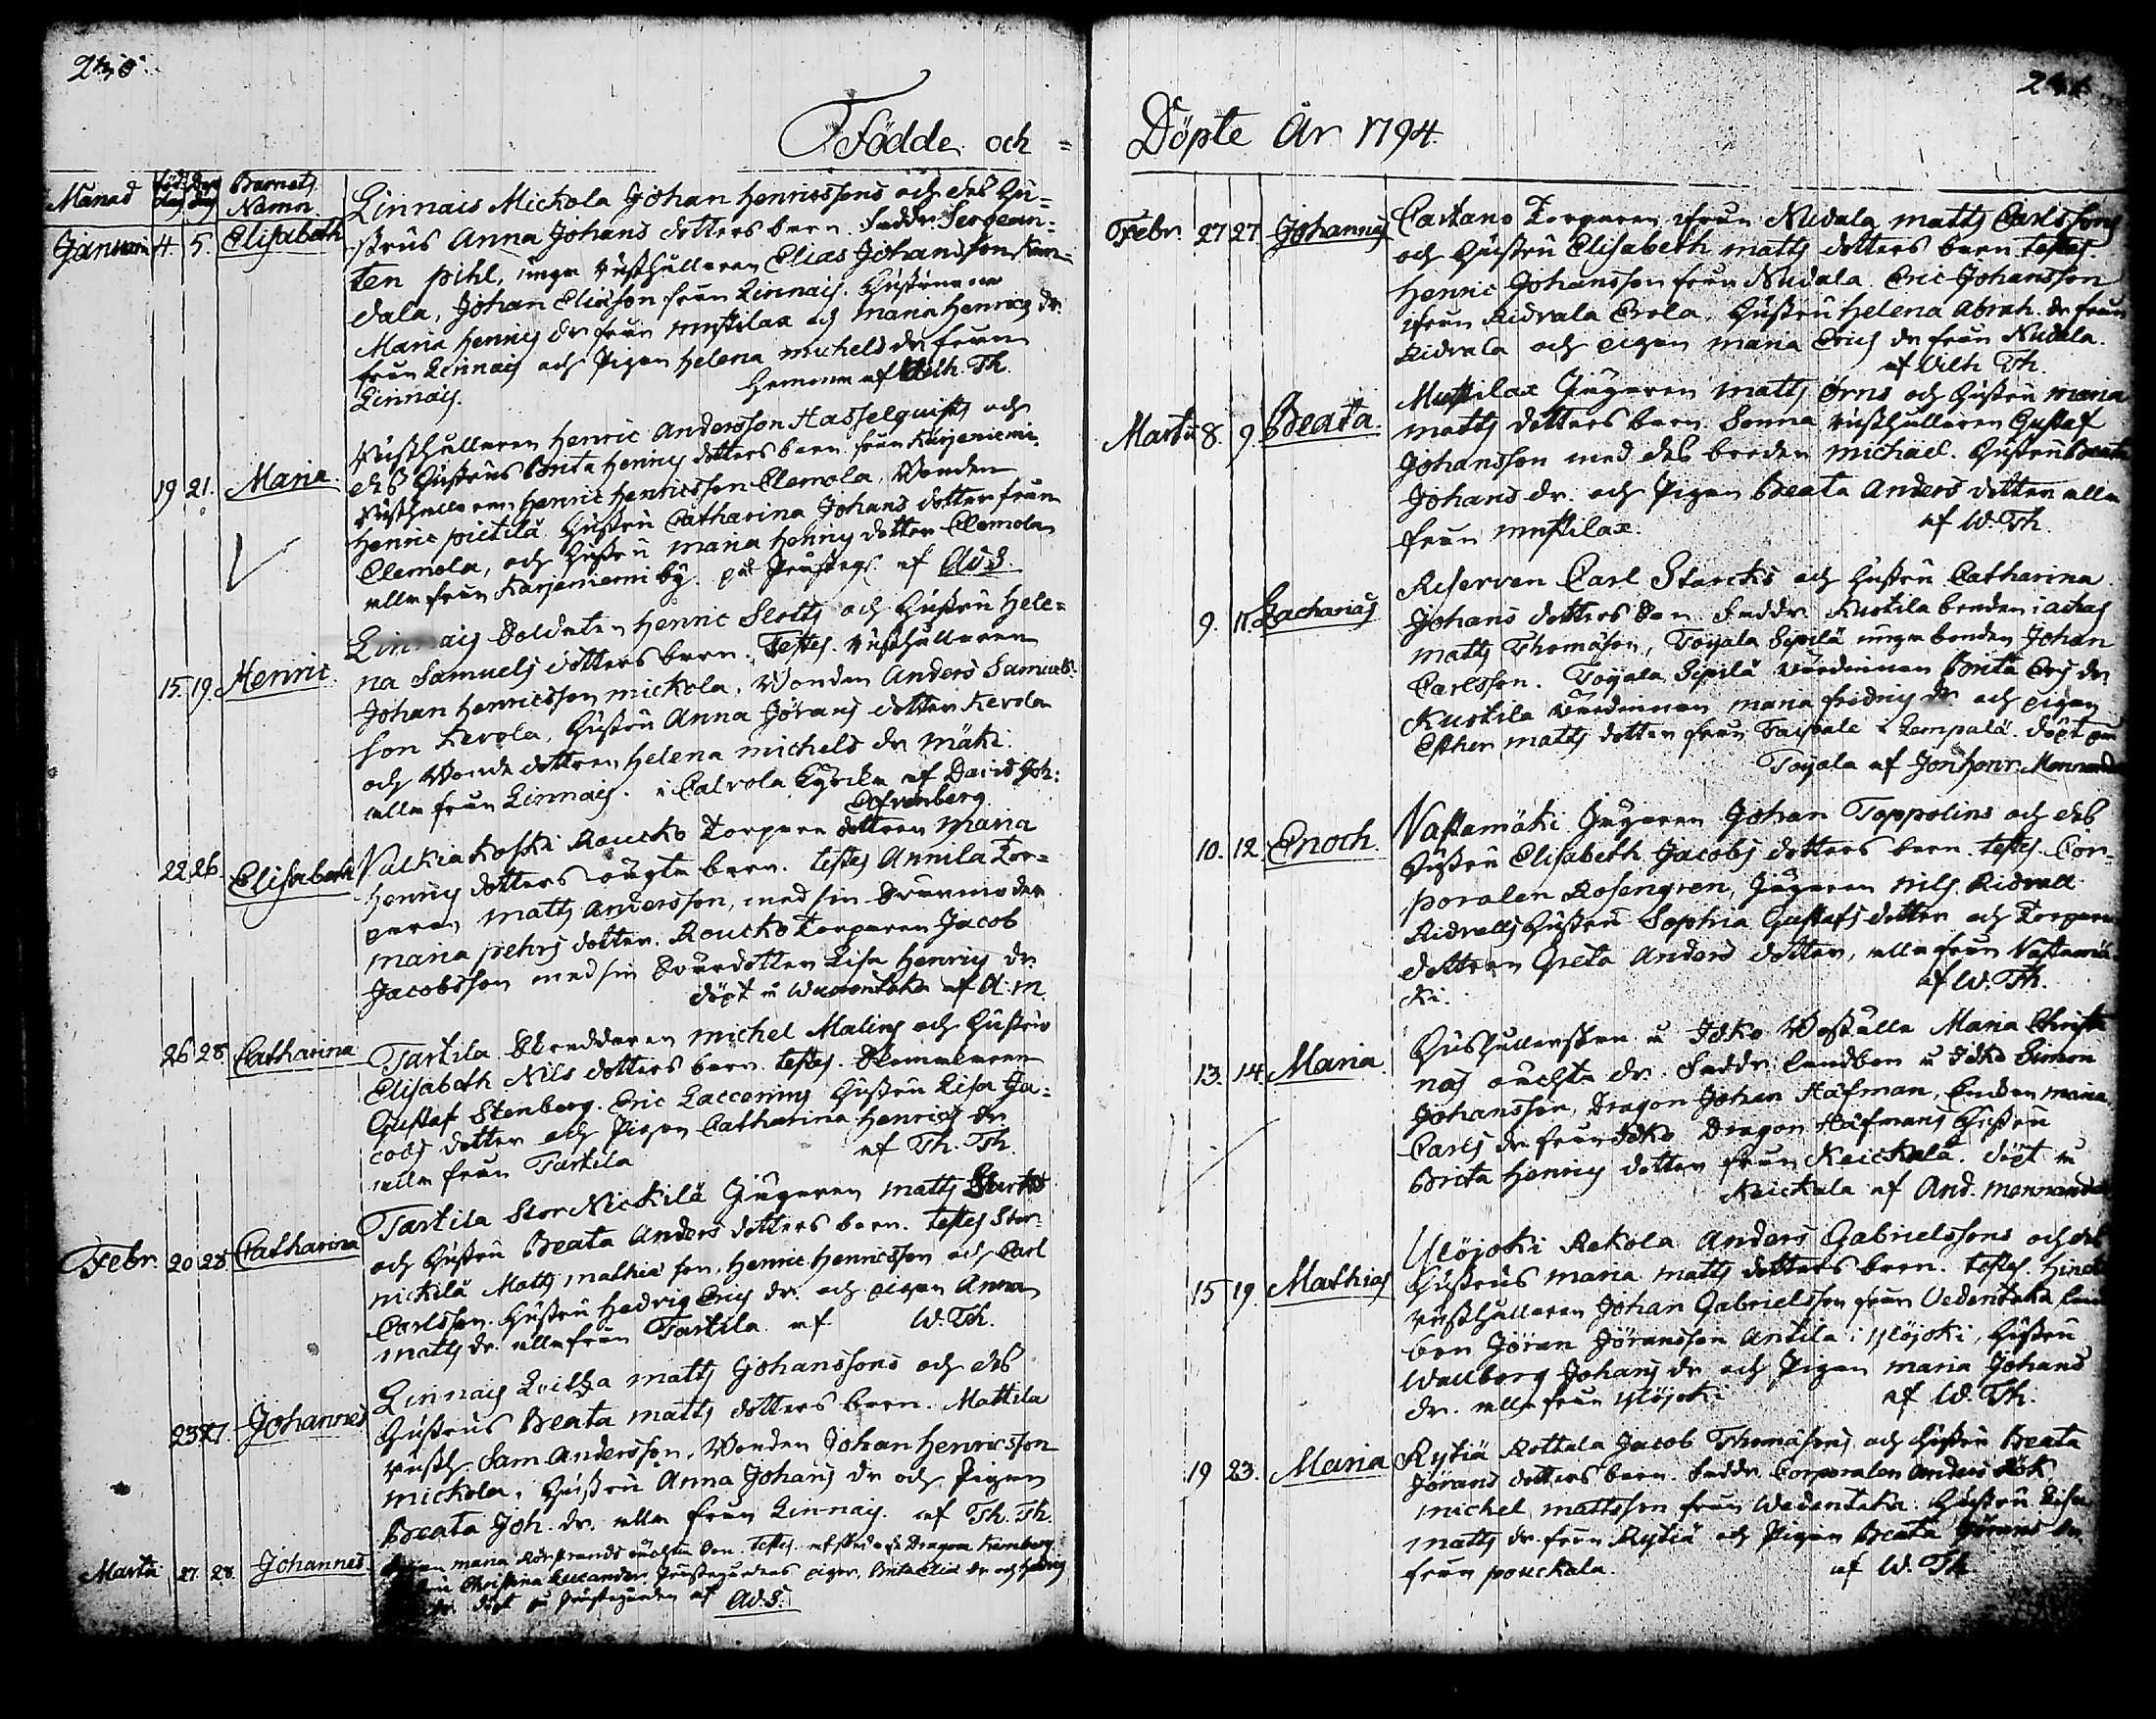 Födde och =
Månad född dag döpt dag Barnets Namn
Januarii 4. 5. Elisabeth
Linnais Mickola Johan Henricssons och des Hu=
strus Anna Johans dotters barn. Faddr. Sergean=
ten Pihl, unga rusthållaren Elias Johansson
dala, Johan Eliasson från Linnais. Hustrurna
Maria Henrics dr från Mustilax och Maria Henrics dr.
från Linnais och Pigan Helena Michels dr från
Linnais. Hemma af Wilh. Th.
19 21. Maria.
Rusthållaren Henric Andersson Hasselquists och
des Hustrus Brita Henrics dotters barn från Karjeniemi.
Rusthållaren Henric Henricsson Clemola, Bonden
Henric Pietilä Hustru Catharina Johans dotter från
Clemola, och Hustru Maria Henrics dotter Clemola
alla från Karjeniemi by. på Prästeg. af Ad S
15. 19. Henric.
Linnais Soldaten Henric Slotts och Hustru Hele=
na Samuels dotters barn. Testes. Rusthållaren
Johan Henricsson Mickola, Bonden Anders Samuels
son Kerola, Hustru Anna Jörans dotter Kerola
och Bonde dottren Helena Michels dr Mäki.
alla från Linnais. i Calvola Kyrcka af David Joh:
22 26. Elisabeth
Valkiakoski Roucko Torpare dottren Maria
Henrics dotters oägta barn. testes Annila Tor=
paren Matts Andersson, med sin Svärmoder
Maria Pehrs dotter. Roucko Torparen Jacob
Jacobsson med sin Svärdotter Lisa Henrics dr.
döpt i Wuorentaka af A. M.
26 28 Catharina
Tartila Skreddaren Michel Malins och Hustru
Elisabeth Nils dotters barn. testes.
Gustaf Stenberg. Eric Laccenius Hustru Lisa Ja=
cobs dotter och Pigan Catharina Henrics dr.
alla från Tartila af Th. Th.
Febr. 20 28 Catharina
Tartila Stor Nickilä Jägaren Matts
och Hustru Beata Anders dotters barn. testes Stor=
nickilä Matts Mathiæson, Henric Henricsson och Carl
Carlsson. Hustru Hedvig Erics dr. och pigan Anna
Matts dr. alla från Tartila af W. Th.
23 27 Johannes
Linnais Matts Johanssons och des
Hustrus Beata Matts dotters barn. Mattila
rusth. Sam Andersson, Bonden Johan Henricsson
Mickola, Hustru Anna Johans dr och Pigan
Beata Joh. dr. alla från Linnais. af Th. Th.
Martii 27. 28. Johannes
Maria oächta Son. Testes. Dragon
Christina Prästegårdens pigor, Brita Elias dr och Hedvig
dr. döpt på Prästegården af Ad. S.
Döpte År 1794.
Febr. 27 27 Johannes
Torparen ifrån Nudala Matts Carlssons
och Hustru Elisabeth Matts dotters barn testes.
Henric Johansson från Nudala. Eric Johansson
ifrån Ridvala Erola. Hustru Helena Abrah. dr från
Ridvala och pigan Maria Erics dr från Nudala.
af Vilh Th.
Martii 8. 9. Beata.
Mustilax Jägaren Matts Örns och Hustru Maria
Matts dotters barn. Samma rusthållaren Gustaf
Johansson med des broder Michael. Hustru Beata
Johans dr. och Pigan Beata Anders dotter alla
från Mustilax. af W. Th.
9. 11. Zacharias
Reserven Carl Starcks och Hustru Catharina
Johans dotters Son Faddr. Kustila bonden
Matts Thomasson, Toyala Sipilä unga bonden Johan
Carlsson. Toyala Sipilä värdinnan Brita Erics dr
Kustila värdinnan Maria Fredrics dr och pigan
Esther Matts dotter från Taipale i Lempälä. döpt på
Toyala af
10. 12. Enoch.
Vastamäki Jägaren Johan Toppolins och des
Hustru Elisabeth Jacobs dotters barn. testes. Cor=
poralen Rosengren, Jägaren Nils Ridvall
Ridvalls Hustru Sophia Gustafs dotter och Torpare
dottren Greta Anders dotter, alla från Vastamä
ki. af W. Th.
13. 14. Maria.
Hushållerskan i Idko Boställe Maria Christi
nas oächta dr. Faddr. landbon i Idko Simon
Johansson, Dragon Johan Häfman, Enckan Maria
Carls dr från Idko Dragon Häfmans Hustru
Brita Henrics dotter från Keickala. döpt i
Keickala af And. Mennander
15 19. Mathias
Ylöjoki Rekola Anders Gabrielssons och des
Hustrus Maria Matts dotters barn. testes.
rusthållaren Johan Gabrielsson från Vedentaka land
bon Jöran Jöransson Antila i Ylöjoki, Hustru
Walborg Johans dr och Pigan Maria Johans
dr. alla från Ylöjoki. af W. Th.
19 23. Maria
Rytiä Rottala Jacob Thomassons och Hustru Beata
Jörans dotters barn. Faddr. Corporalen Anders Rök
Michel Mattsson från Wedentaka. Hustru Lisa
Matts dr från Rytiä och Pigan Beata Jörans dr
från Pouckala. af W. Th.